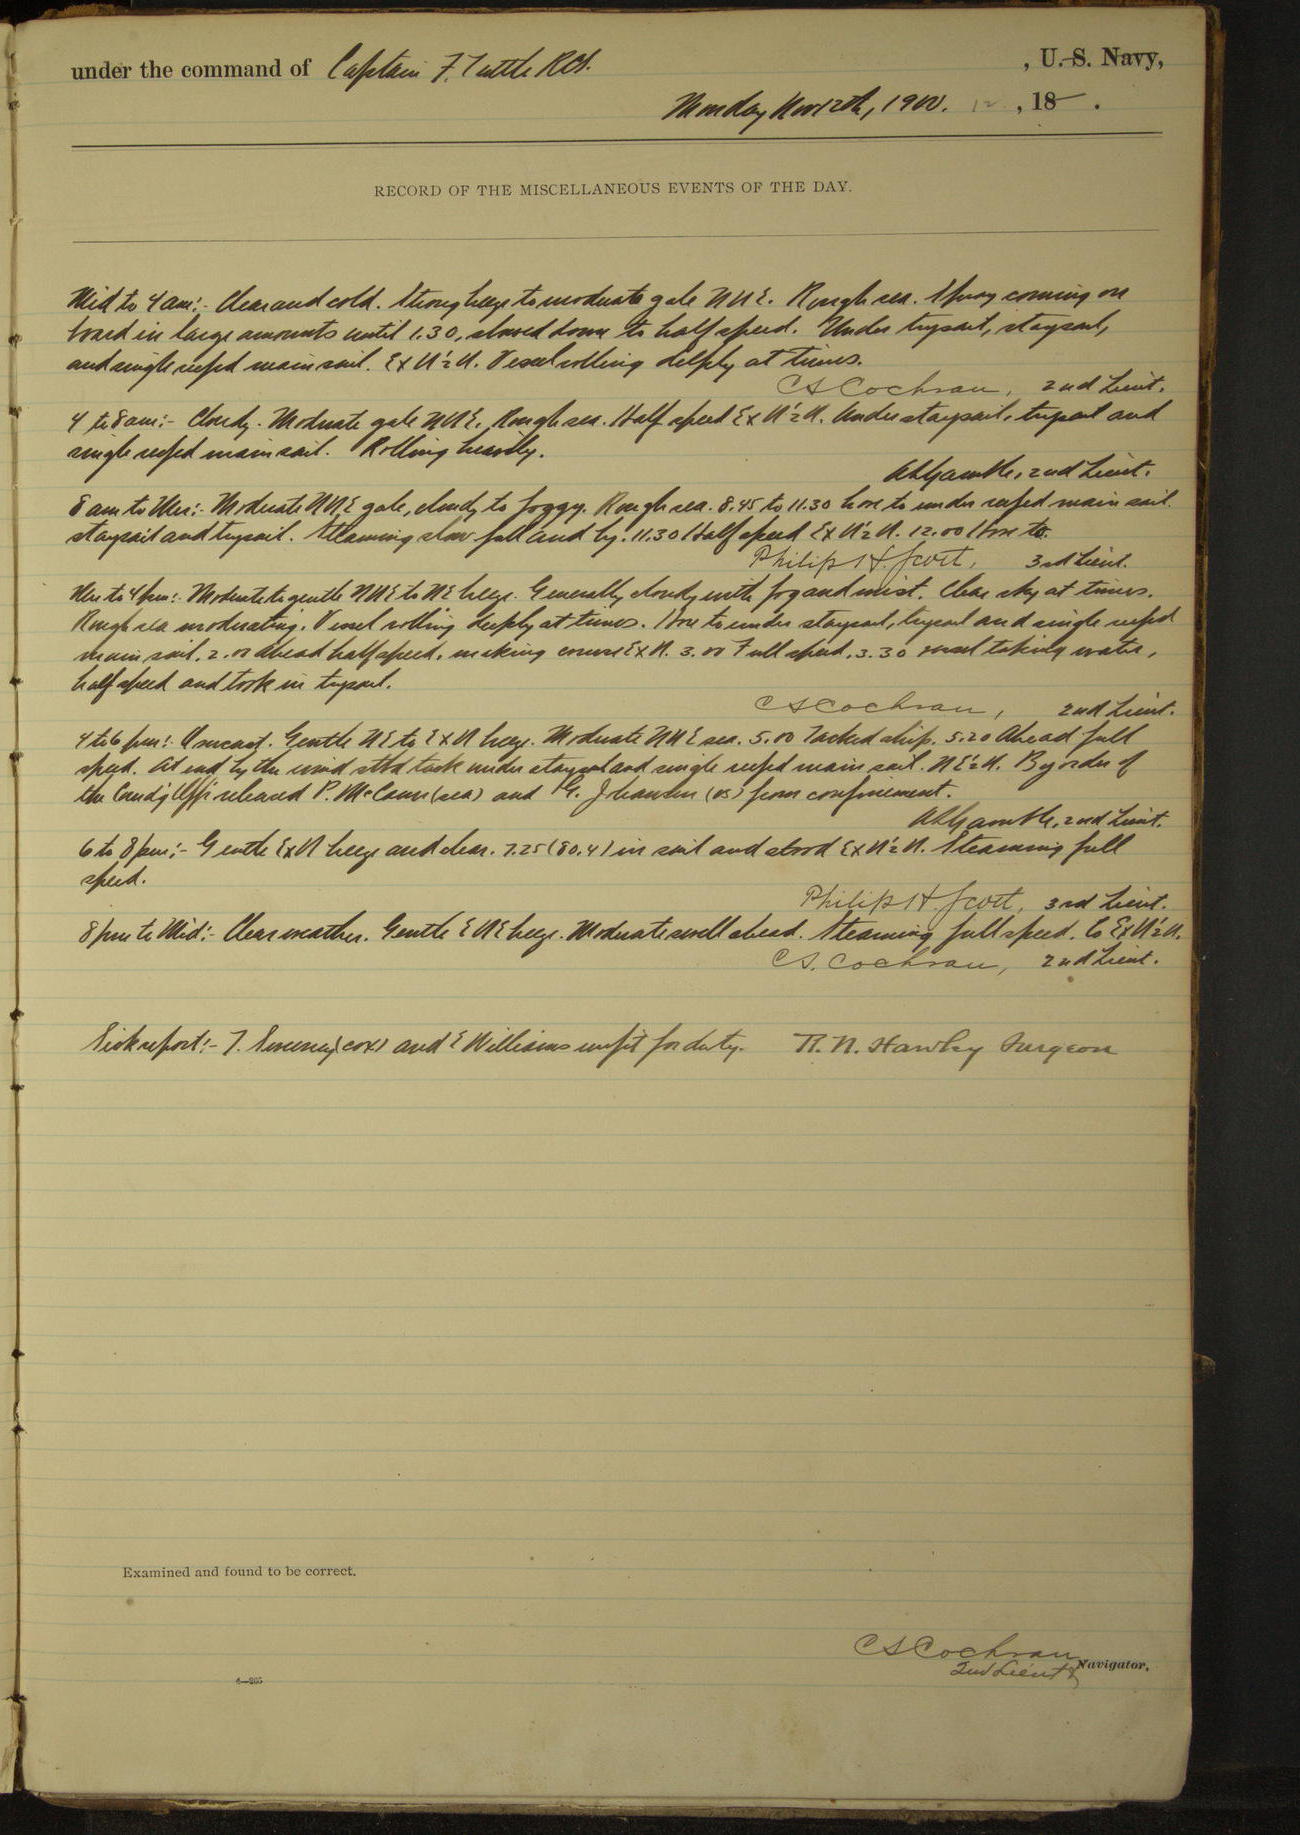 under the command of Captain F. Tuttle RCS. , U. S. Navy,
Monday Nov 12th, 1900. 12 , 18 .
RECORD OF THE MISCELLANEOUS EVENTS OF THE DAY.
Mid to 4 am:- Clear and cold. Strong breeze to moderate gale NNE. Rough sea. Spray coming on
board in large amounts until 1.30, slowed down to half speed. Under trysail, staysail,
and single reefed main sail. ExN½N. Vessel rolling deeply at times.
CS Cochran, 2nd Lieut.
4 to 8 am:- Cloudy. Moderate gale NNE. Rough sea. Half speed ExN½N. Under staysail, trysail and
single reefed main sail. Rolling heavily.
AL Gamble, 2nd Lieut.
8 am to Mer:- Moderate NNE gale, cloudy to foggy. Rough sea. 8.45 to 11.30 hove to under reefed main sail
staysail and trysail. Steaming slow full and by. 11.30 Half speed ExN½N. 12.00 Hove to.
Philip H. Scott, 3rd Lieut.
Mer to 4 pm:- Moderate to gentle NNE to NE breeze. Generally cloudy with fog and mist. Clear sky at times.
Rough sea moderating. Vessel rolling deeply at times. Hove to under staysail, trysail and single reefed
main sail. 2.00 Ahead half speed, making course ExN. 3.00 Full speed. 3.30 vessel taking water,
half speed and took in trysail.
CS Cochran, 2nd Lieut.
4 to 6 pm:- Overcast. Gentle NE to ExN breeze. Moderate NNE sea. 5.00 Tacked ship. 5.20 Ahead full
speed. At end by the wind stbd tack under staysail and single reefed main sail. NE½N. By order of
the Comd'g Offr released P. McCann (sea) and G. Johansen (os) from confinement.
AL Gamble, 2nd Lieut.
6 to 8 pm:- Gentle ExN breeze and clear. 7.25 (80.4) in sail and stood ExN½N. Steaming full
speed.
Philip H. Scott, 3rd Lieut.
8 pm to Mid:- Clear weather. Gentle ENE breeze. Moderate swell ahead. Steaming full speed. Co ExN½N.
CS. Cochran, 2nd Lieut.
Sick report:- T. Sweeney (cox) and E Williams unfit for duty. R. N. Hawley Surgeon
Examined and found to be correct.
CS Cochran
2nd Lieut & Navigator.